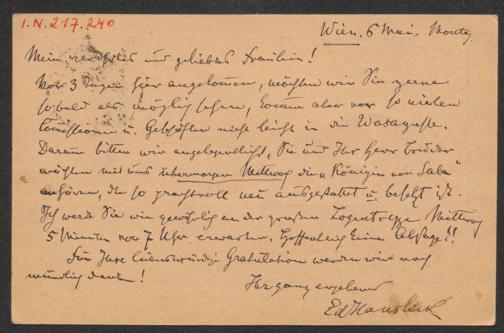 I.N. 217.240
Wien, 6 Mai. Montg.
Mein verehrtes und geliebtes Fräulein!
Vor 3 Tagen hier angekommen, möchten wir Sie gerne
so bald als möglich sehen, komme aber vor so vielen
Commissionen u. Geschäften nicht leicht in die Wasagasse.
Darum bitten wir angelegentlichst, Sie und Ihr Herr Bruder
möchten mit uns übermorgen Mittwoch die „Königin von Saba"
anhören, die so prachtvoll neu ausgestattet u. besetzt ist.
Ich werde Sie wie gewöhnlich an der großen Logentreppe Mittwoch
5 Minuten vor 7 Uhr erwarten. Hoffentlich keine Absage!!
Für Ihre liebenswürdige Gratulation werden wir noch
mündlich danken!
Ihr ganz ergebener
Ed Hanslick